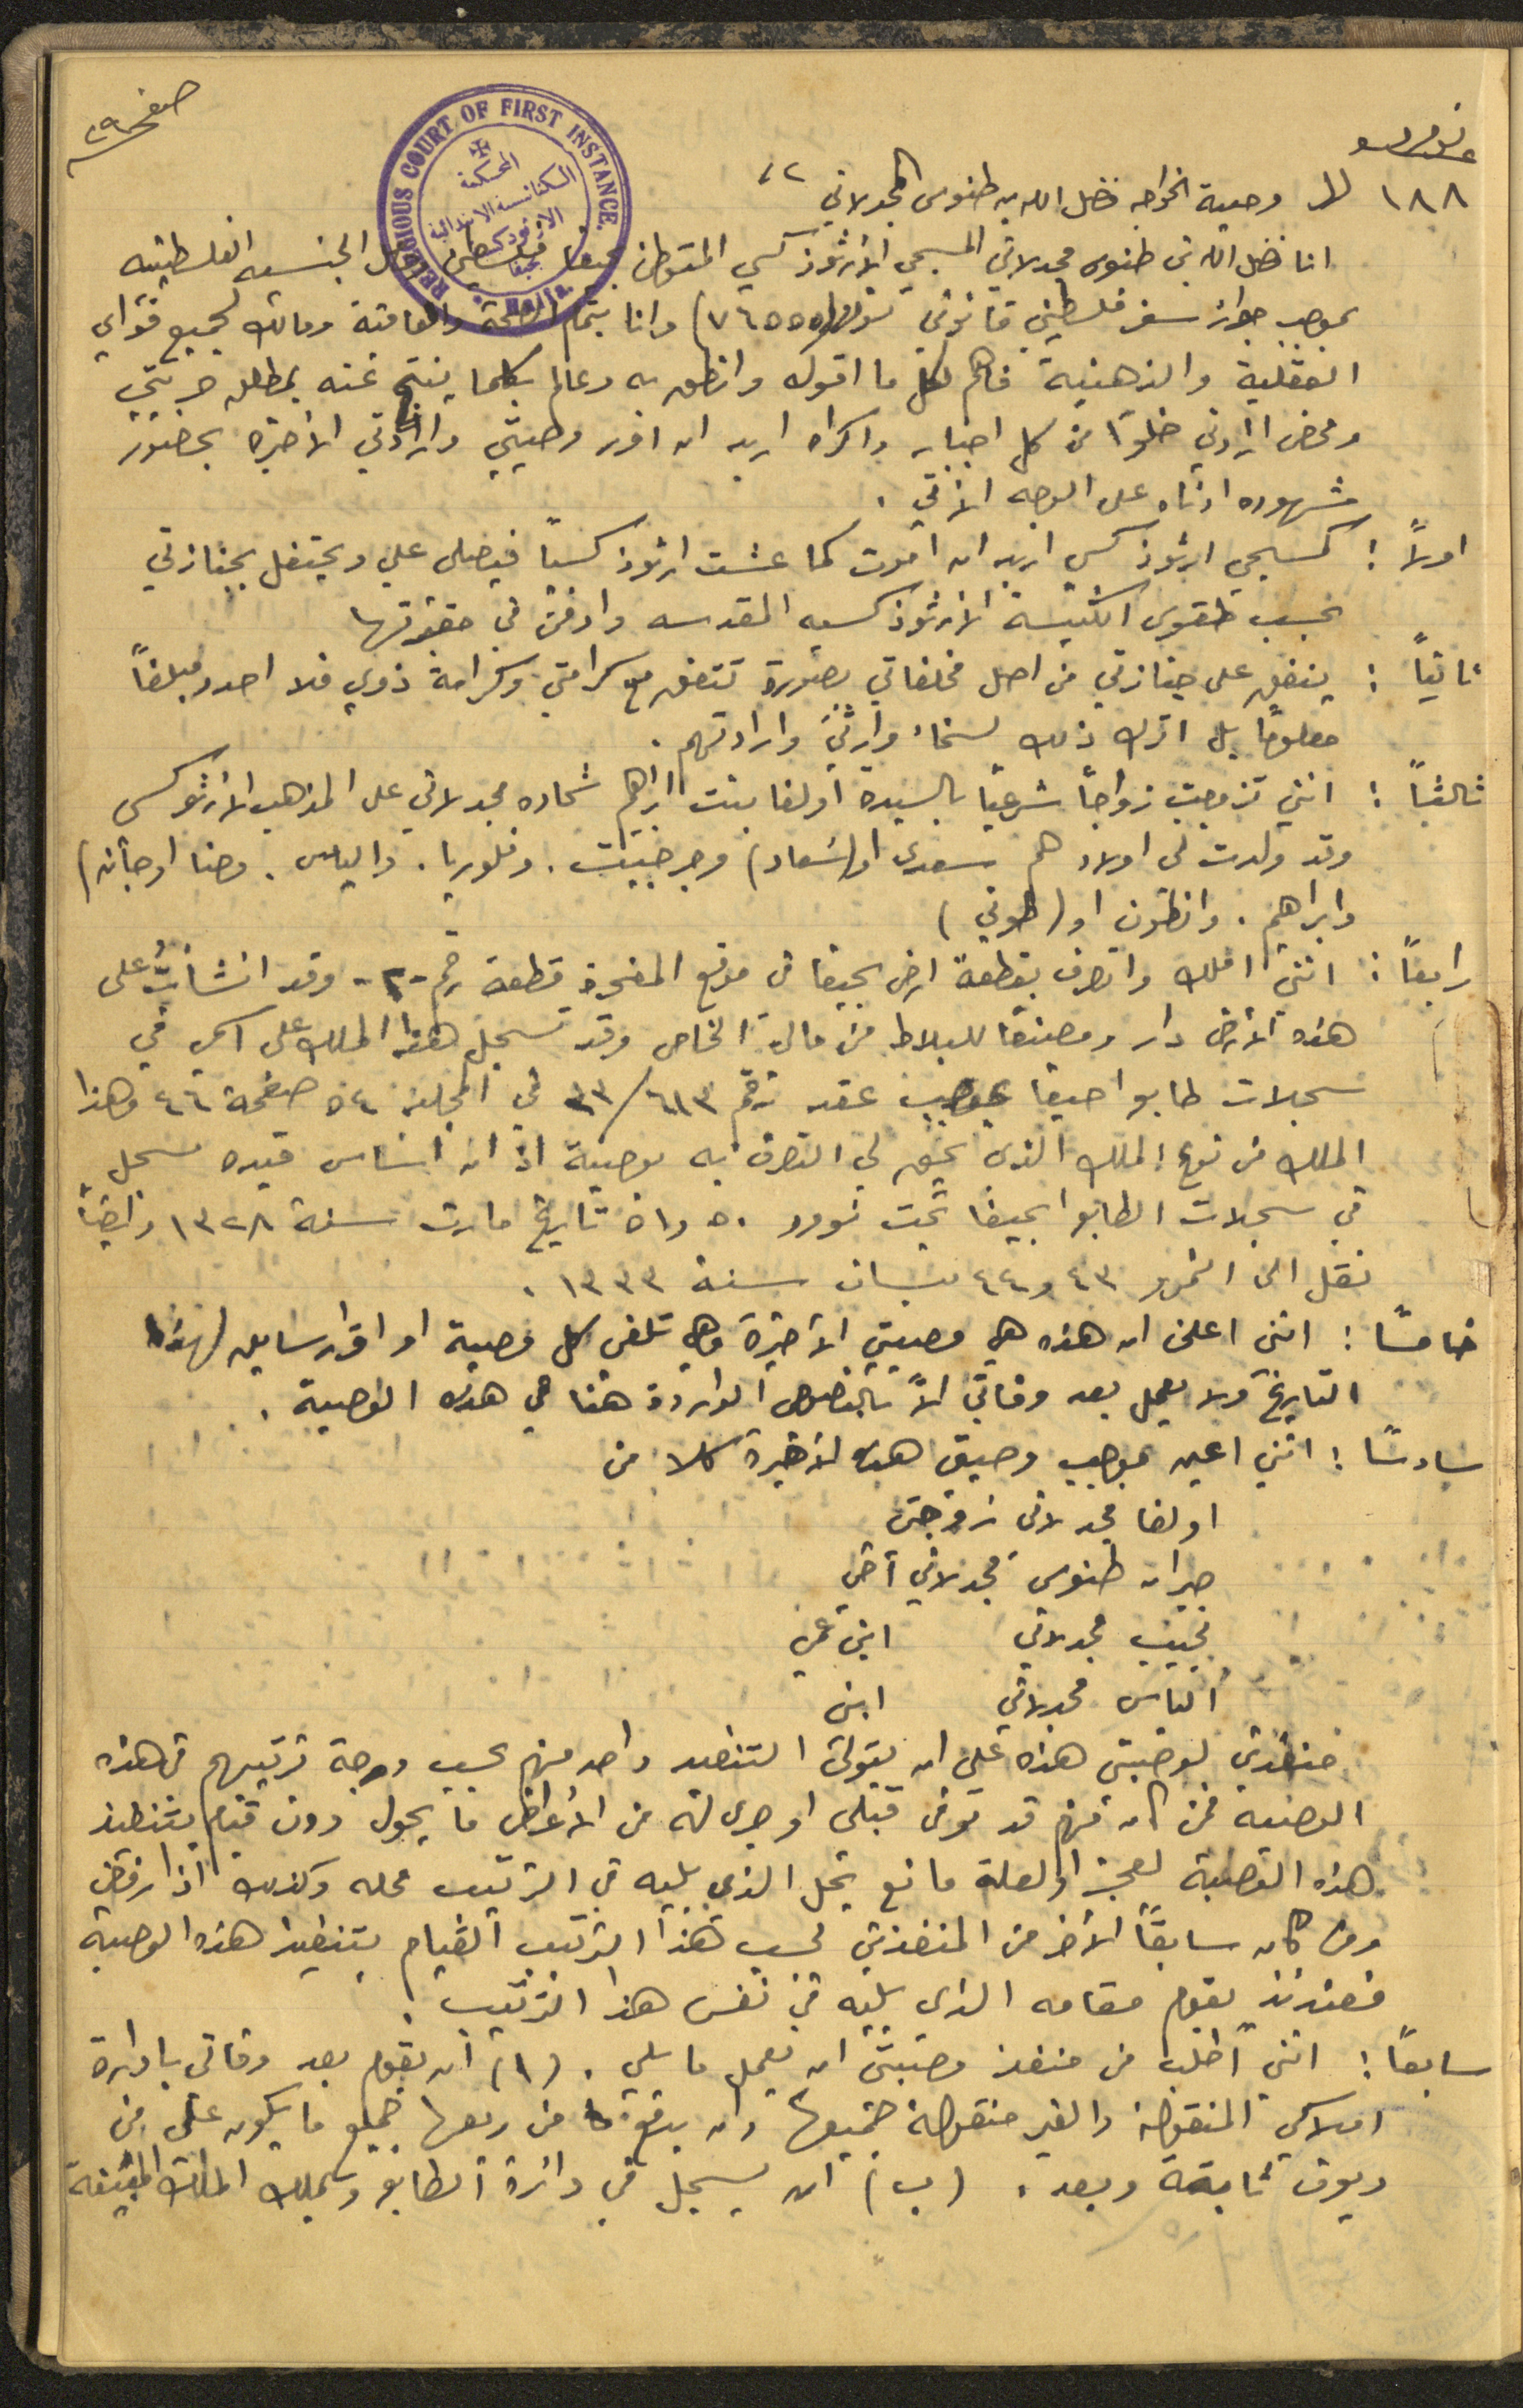 صفحة ٢٩
RELIGIOUS COURT OF FIRST INSTANCE.
المحكمة
الكنائسية الابتدائية
الارثوذكسية
بحيفا
HAIFA
١٨٨ وصية الخواجه فضل الله بن طنوس المجدلاني
انا فضل الله بن طنوس مجدلاني المسيحي الارثوذكسي المتوطن بحيفا فلسطين الجنسيه الفلسطينيه
بموجب جواز سفر فلسطيني قانوني نمره (٧٦٥٥٥) وانا بتمام الصحة والعافية ومالك لجميع قواي
العقلية والذهنية فاهم لكل ما اقوله وانطق به وعالم بكلما ينتج عنه بمطلق حريتي
ومحض ارادتي خلوًا من كل اجبار واكراه اريد ان اقرر وصيتي وارادتي الأخيره بحضور
شهوده ادناه على الوجه الآتي .
اولاً : كمسيحي ارثوذكسي اريد ان اموت كما عشت ارثوذكسياً فيصلى علي ويحتفل بجنازتي
بحسب طقوس الكنيسة الارثوذكسيه المقدسه وادفن في مقبرتها
ثانياً : ينفق على جنازتي من اصل مخلفاتي بصورة تتفق مع كرامتي وكرامة ذوي فلا احدد مبلغاً
معلومًا بل اترك ذلك لسخاء وارثيَّ وارادتهم .
ثالثاً : انني تزوجت زواجاً شرعياً بالسيدة اولغا بنت ابراهيم شحاده مجدلاني على المذهب الارثوذكسي
وقد ولدت لي اولاد هم سعدى او (سعاد) وجرجيت . وفلوريا . والياس . وحنا او جان)
وابراهيم . وانطون او (طوني)
رابعاً : انني املك واتصرف بقطعة ارض بحيفا في موقع المغيرة قطعة رقم -٢- وقد انشأت على
هذه الأرض دار ومصنعًا للبلاط من مالي الخاص وقد تسجل هذا الملك على اسمي في
سجلات طابو احيفا بموجب عقد رقم ٦١٣/٣٣ في المجلد ٥٤ صفحة ٤٦ وهذا
الملك من نوع الملك الذي يحق لي التصرف به بوصية اذ ان اساس قيده مسجل
في سجلات الطابو بحيفا تحت نومرو ٥٠ و٥١ تاريخ مارت سنة ١٣٢٨ وايضاً
نقل الى النمرو ٤٣ و٤٤ نيسان سنة ١٣٣٣ .
خامسًا : انني اعلن ان هذه هي وصيتي الأخيرة وهي تلغى كل وصية او اقرار سابق لهذا
التاريخ ولا يعمل بعد وفاتي الاّ بالنصوص الواردة هنا في هذه الوصية .
سادسًا : انني اعين بموجب وصيتي هذه الأخيرة كلا من
اولغا مجدلاني زوجتي
جبران طنوس مجدلاني أخي
نجيب مجدلاني ابن عمي
الياس مجدلاني ابني
منفذي لوصيتي هذه على ان يتولى التنفيذ واحد منهم بحسب درجة ترتيبهم في هذه
الوصيه فمن كان منهم قد توفى قبلي او جرى له من الأعراض ما يحول دون قيام بتنفيذ
هذه الوصية لعجز او لعلة مانع يحل الذي يليه في الترتيب محله وكذلك اذا رفض
ومن كان سابقًا الآخر من المنفذين بحسب هذا الترتيب القيام بتنفيذ هذه الوصية
فعندئذ يقوم مقامه الذي يليه في نفس هذا الترتيب .
سابعاً : انني اطلب من منفذ وصيتي ان يعمل ما يلي . (١) ان يقوم بعد وفاتي بادارة
املاكي المنقولة والغير منقولة جميعها وان يدفع من ريعها جميع ما يكون علي من
ديون ثابتة وبعد . (ب) ان يسجل في دائرة الطابو وتمليك الملك